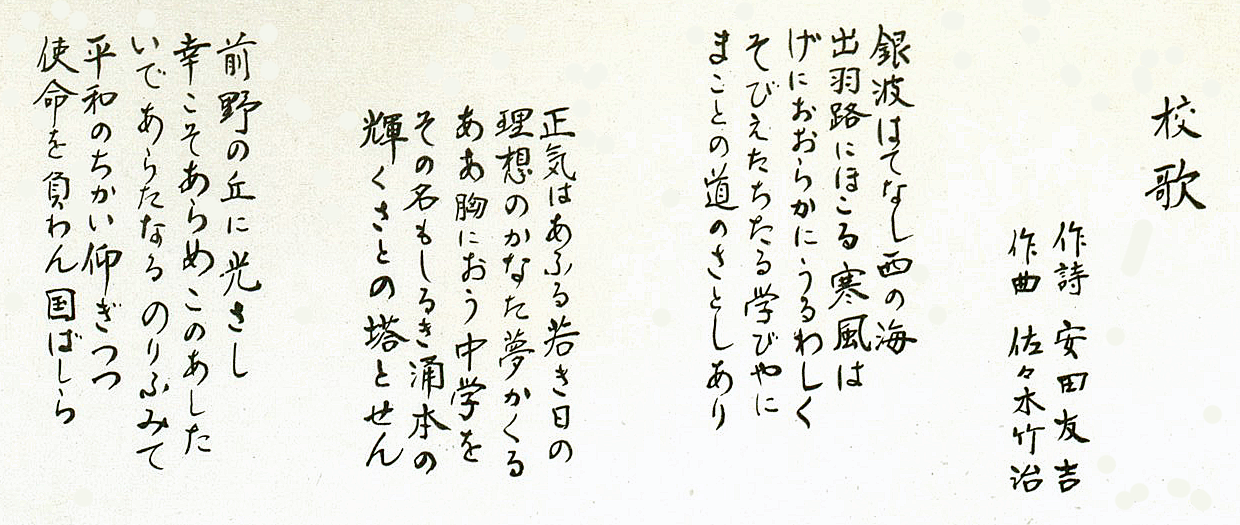 校歌
作詩 安田友吉
作曲 佐々木竹治
銀波はてなし西の海
出羽路にほこる寒風は
げにおおらかにうるわしく
そびえたちたる学びやに
まことの道のさとしあり
正気はあふる若き日の
理想のかなた夢かくる
ああ胸におう中学を
その名もしるき涌本の
輝くさとの塔とせん
前野の丘に光さし
幸こそあらめこのあした
いであらたなるのりふみて
平和のちかい仰ぎつつ
使命を負わん国ばしら